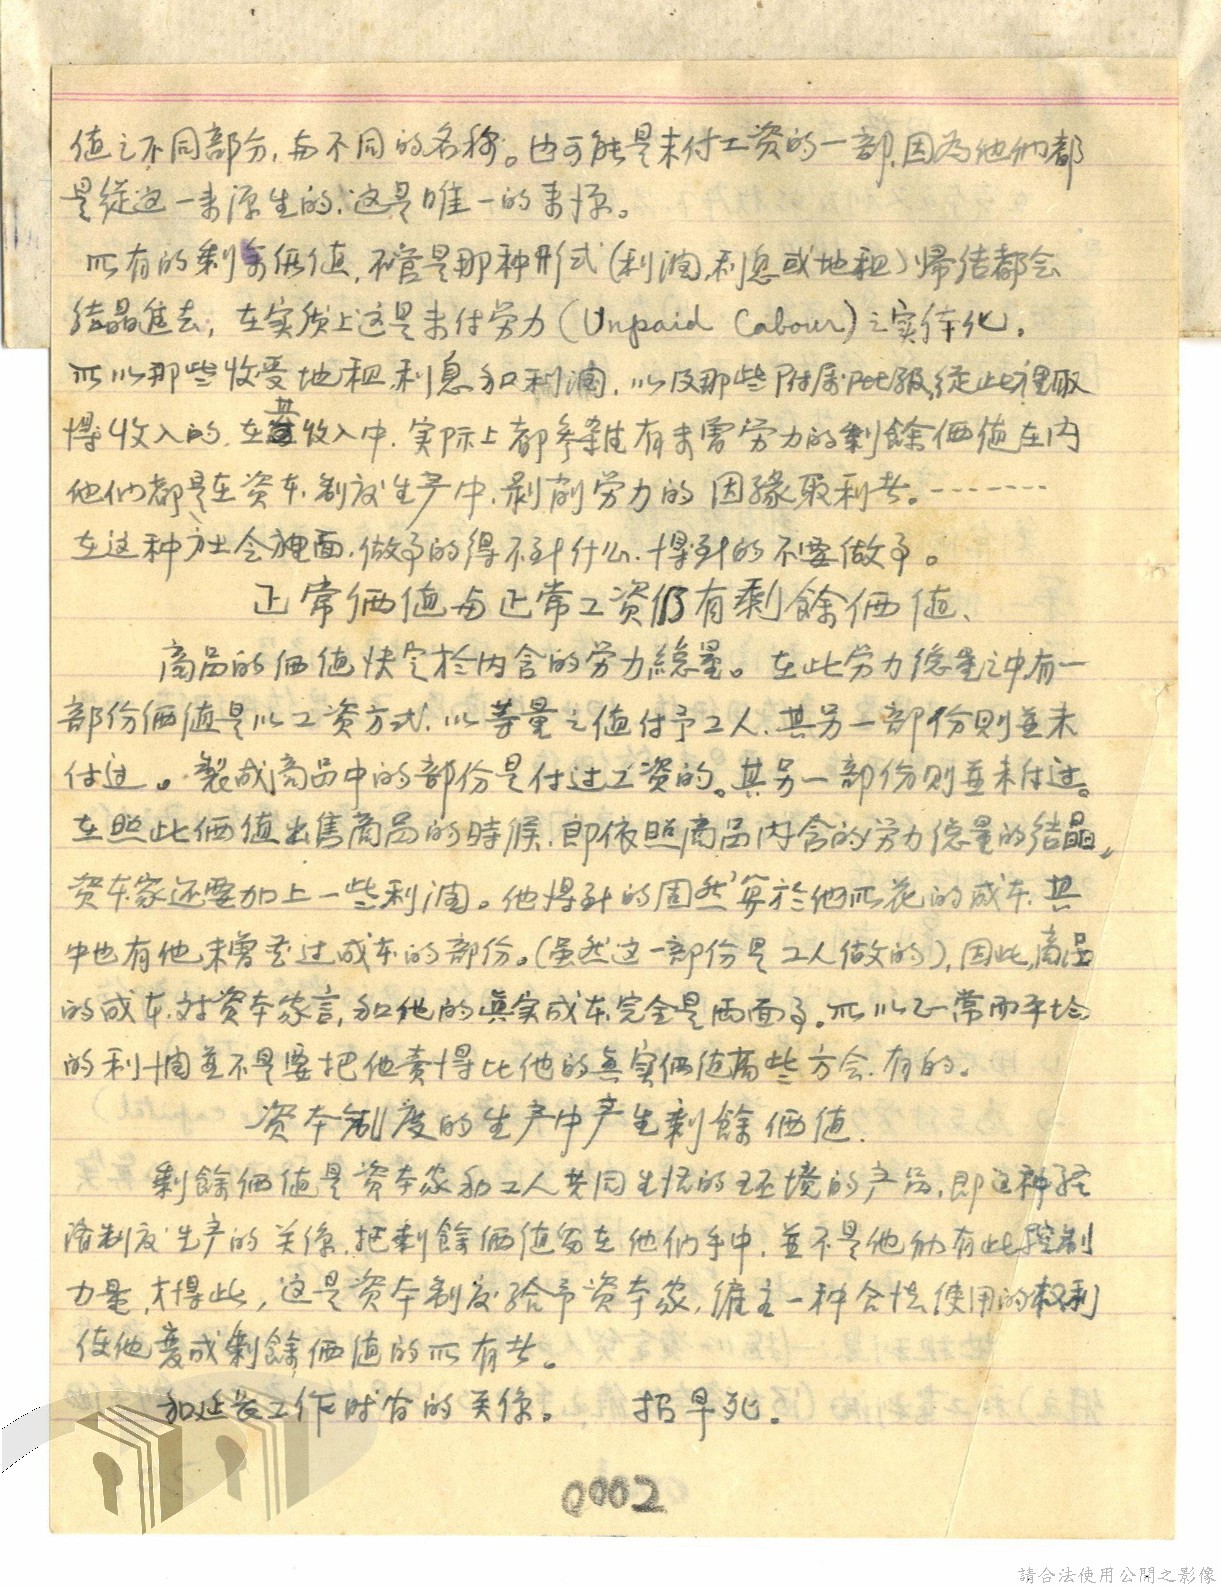 值之不同部分,与不同的名称。也可能是未付工资的一部,因為他们都
是從这一来源生的.这是唯一的来源。
所有的剩余価值,不管是那种形式(利潤,利息或地租)歸结都会
结晶進去,在实质上这是未付劳力(Unpaid Labour)之实体化.
所以那些收受地租.利息和利潤.以及那些附属阶级,從此裡取
得收入的.在其收入中.实际上都参杂有未雷劳力的剩餘価值在内
他们都是在资本制度生产中.剥削劳力的因緣取利者。-------
在这种社会裡面.做事的得不到什么.得到的不要做事。
正常価值与正常工资仍有剩餘価值、
商品的価值快定於内含的劳力總量。在此劳力總量之中有一
部份価值是以工资方式.以等量之值付予工人.其另一部份則並未
付过。製成商品中的部份是付过工资的。其另一部份则並未付过。
在照此価值出售商品的時候.即依照商品内含的劳力總量的结晶,
资本家还要加上一些利潤。他得到的固然算於他所花的成本.其
中也有他未曾花过成本的部份。(虽然这一部份是工人做的),因此,商品
的成本.对资本家言,和他的真实成本.完全是両面事。所以正常而平均
的利潤並不是要把他卖得比他的真实価值高些方会.有的。
资本制度的生产中产生剩餘価值.
剩餘価值是资本家和工人共同生活的环境的产品,即这种经
济制度生产的关係.把剩餘価值留在他们手中.並不是他们有此控制
力量,才得此,这是资本制度给予资本家,雇主一种合法使用的权利
使他变成剩餘価值的所有者。
和延长工作时间的关係。 招早死.
0002
請合法使用公開之影像